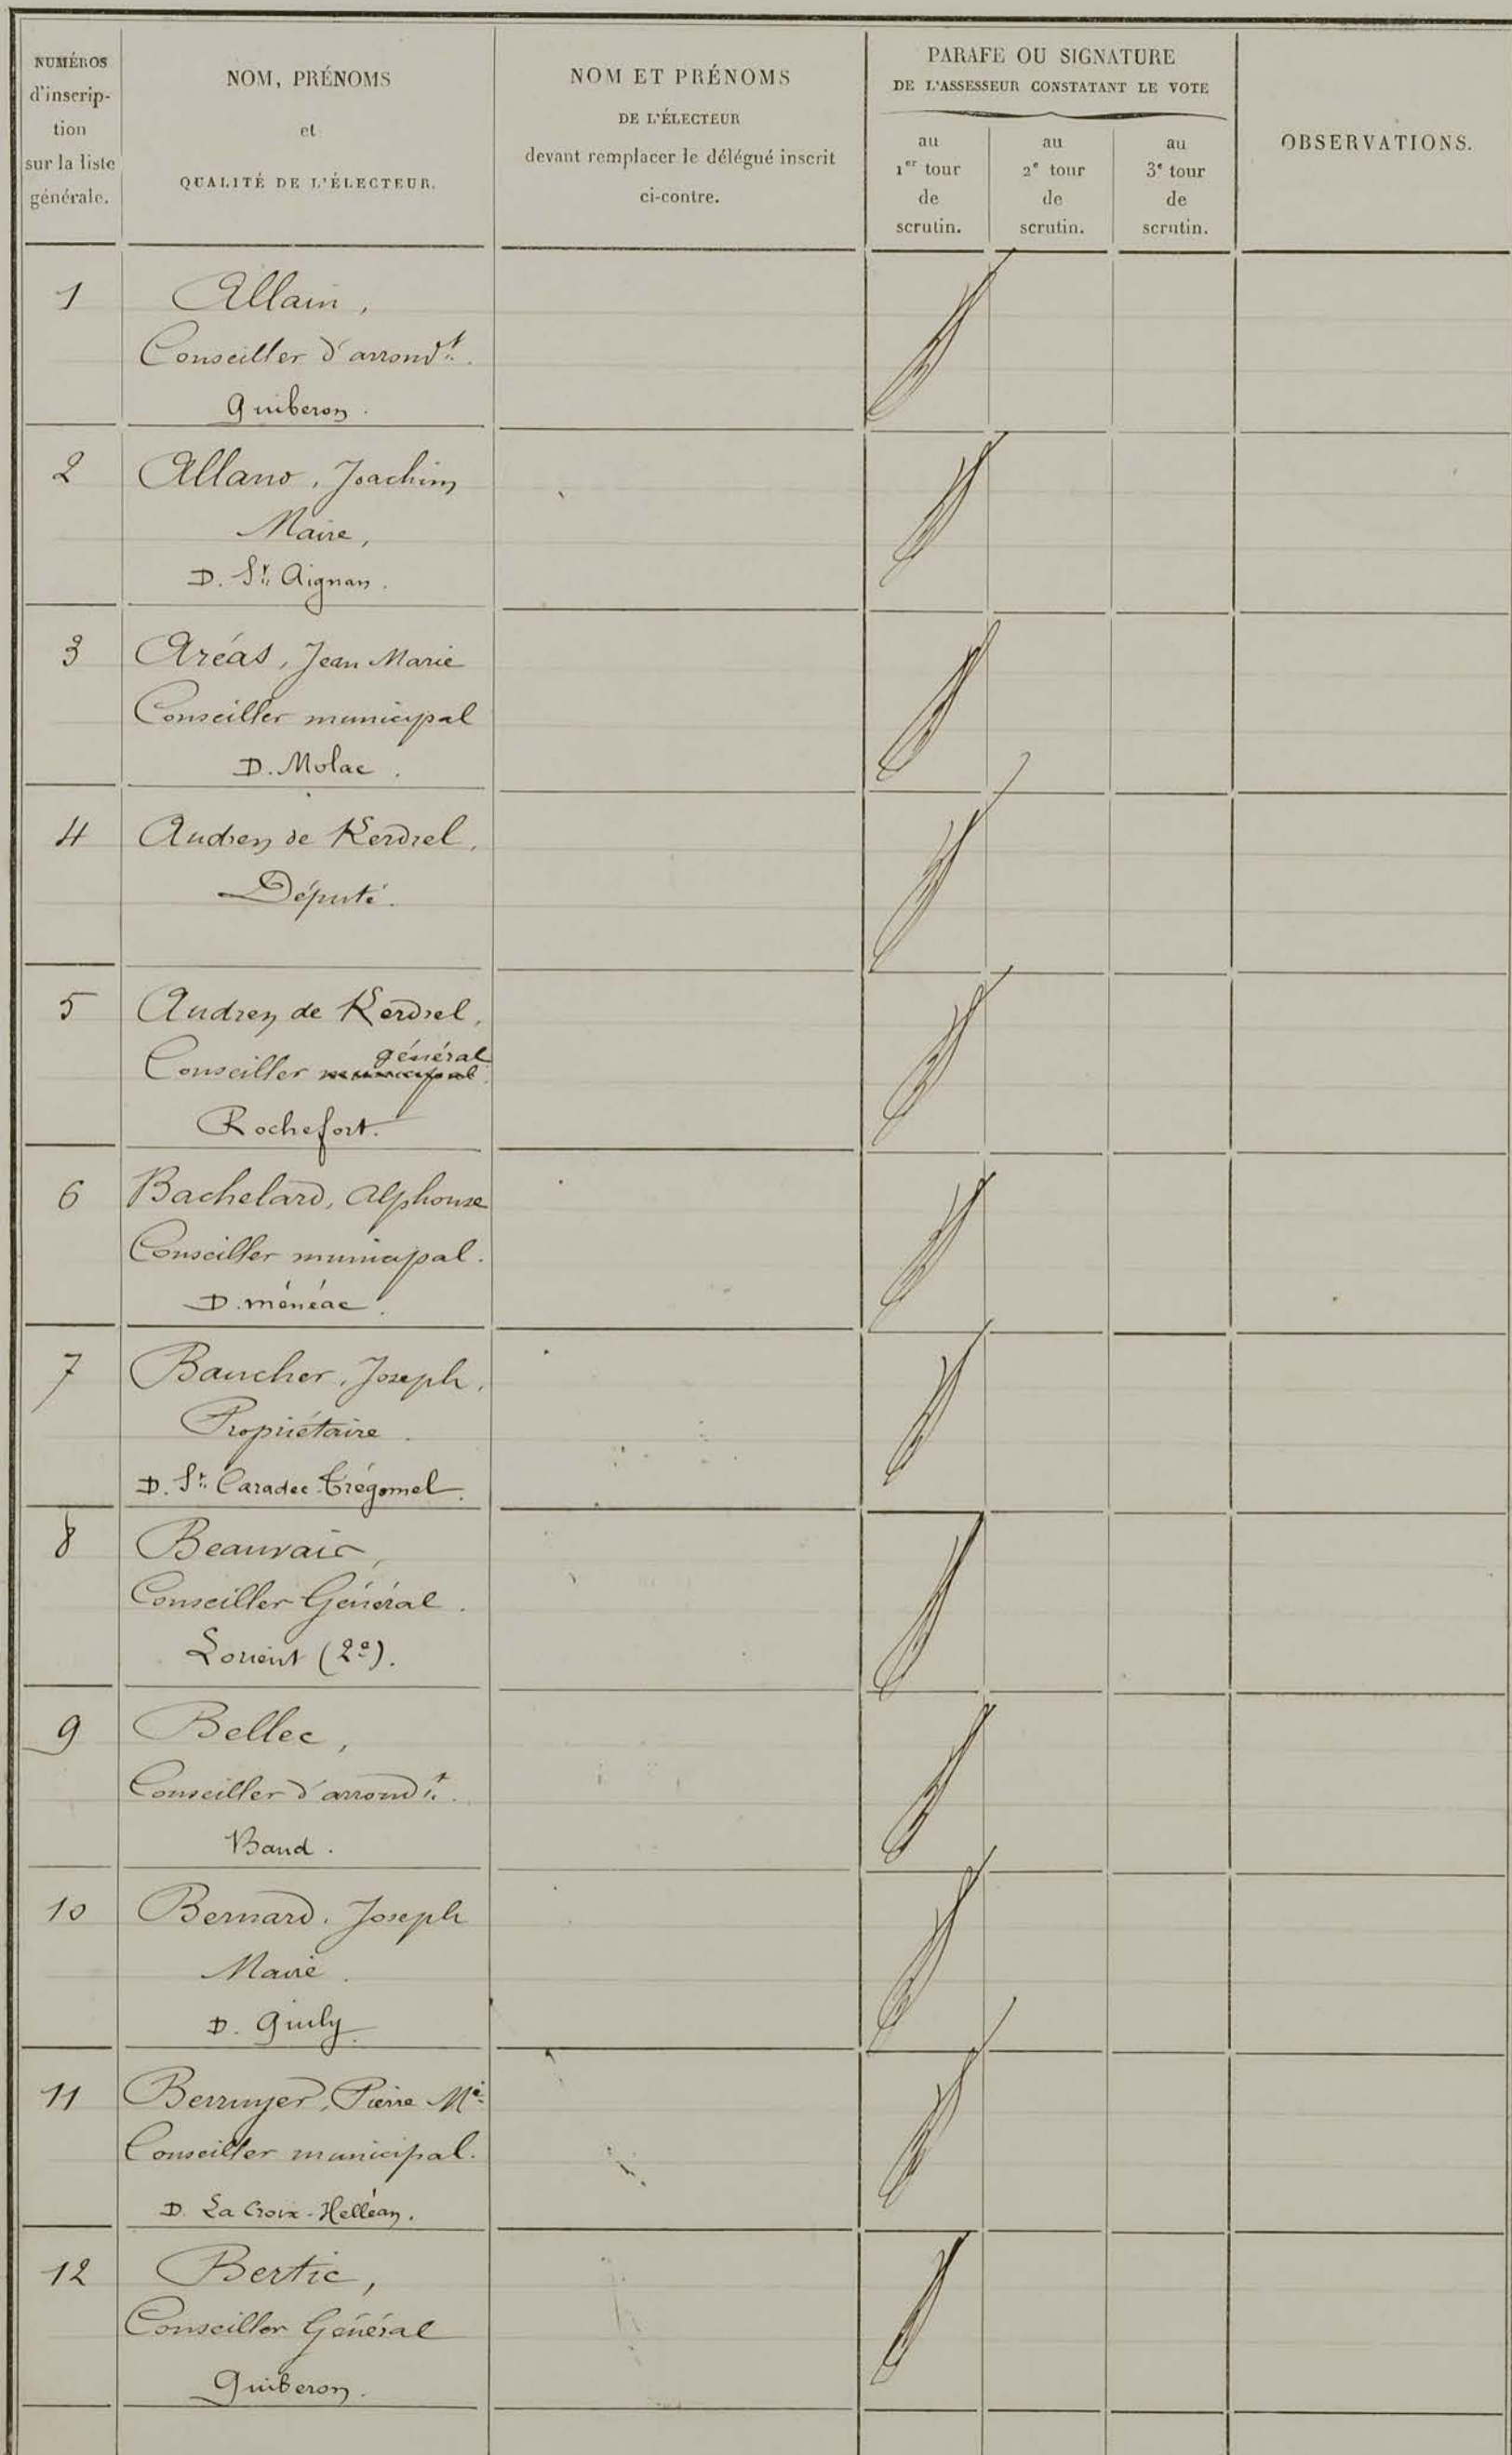 NUMÉROS
d'inscrip-
tion
sur la liste
générale.
NOM, PRÉNOMS
et
QUALITÉ DE L'ÉLECTEUR.
NOM ET PRÉNOMS
DE L'ÉLECTEUR
devant remplacer le délégué inscrit
ci-contre.
PARAFE OU SIGNATURE
DE L'ASSESSEUR CONSTATANT LE VOTE
au
1er tour
de
scrutin.
au
2e tour
de
scrutin.
au
3e tour
de
scrutin.
OBSERVATIONS.
1 Allain,
Conseiller d'arrondt.
Quiberon.
2 Allano, Joachim
Maire,
D. St Aignan.
3 Aréas, Jean Marie
Conseiller municipal
D. Molac.
4 Audren de Kerdrel,
Député.
5 Audren de Kerdrel,
général
Conseiller municipal
Rochefort.
6 Bachelard, Alphonse
Conseiller municipal.
D. Ménéac.
7 Baucher, Joseph,
Propriétaire.
D. St Caradec-Trégomel.
8 Beauvais,
Conseiller Général.
Lorient (2e).
9 Bellec,
Conseiller d'arrondt.
Baud.
10 Bernard, Joseph
Maire.
D. Quily.
11 Berruyer, Pierre Mie
Conseiller municipal.
D. La Croix-Helléan.
12 Bertic,
Conseiller Général
Quiberon.